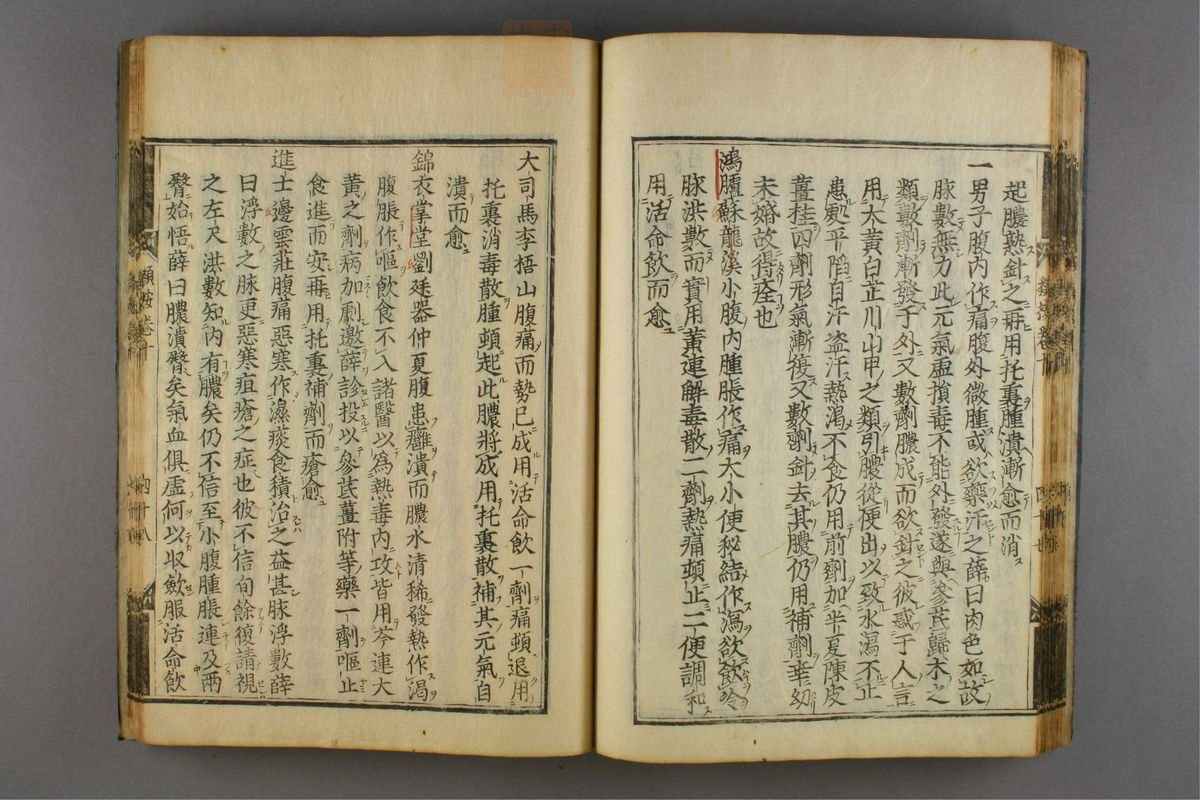 起膿熟針之再用托裏腫潰漸愈而消
一男子腹内作痛腹外微腫或欲藥汗之薛曰肉色如故
脉數無力此元氣虛損毒不能外發遂與參芪歸朮之
類數劑漸發于外又數劑膿成而欲針之彼惑于人言
用大黄白芷川山甲之類引膿從便出以致水瀉不止
患處平陷自汗盗汗熱渴不食仍用前劑加半夏陳皮
薑桂四劑形氣漸復又數劑針去其膿仍用補劑幸幼
未婚故得痊也
鴻臚蘇龍溪小腹内腫脹作痛大小便秘結作瀉欲飲冷
脉洪數而實用黄連解毒散二劑熱痛頓止二便調和
用活命飲而愈
大司馬李梧山腹痛而勢已成用活命飲一劑痛頓退用
托裏消毒散腫頓起此膿將成用托裏散補其元氣自
潰而愈
錦衣掌堂劉廷器仲夏腹患癰潰而膿水清稀發熱作渴
腹脹作嘔飲食不入諸醫以爲熱毒内攻皆用芩連大
黄之劑病加劇邀薛診投以參芪薑附等藥一劑嘔止
食進而安再用托裏補劑而瘡愈
進士邊雲莊腹痛惡寒作濕痰食積治之益甚脉浮數薛
曰浮數之脉更惡寒疽瘡之症也彼不信旬餘復請視
之左尺洪數知内有膿矣仍不信至小腹腫脹連及兩
臀始悟薛曰膿潰臀矣氣血俱虛何以收斂服活命飲
類按卷十
四十八